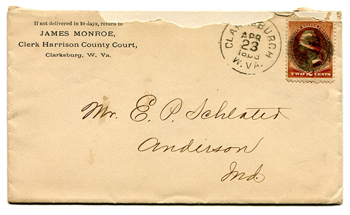 If not delivered in 10 days, return to
JAMES MONROE,
Clerk Harrison County Court,
Clarksburg, W. Va.
CLARKSBURGH
APR
23
W. VA.
TWO 2 CENTS
Mr. E. P. Schlater
Anderson
Ind.